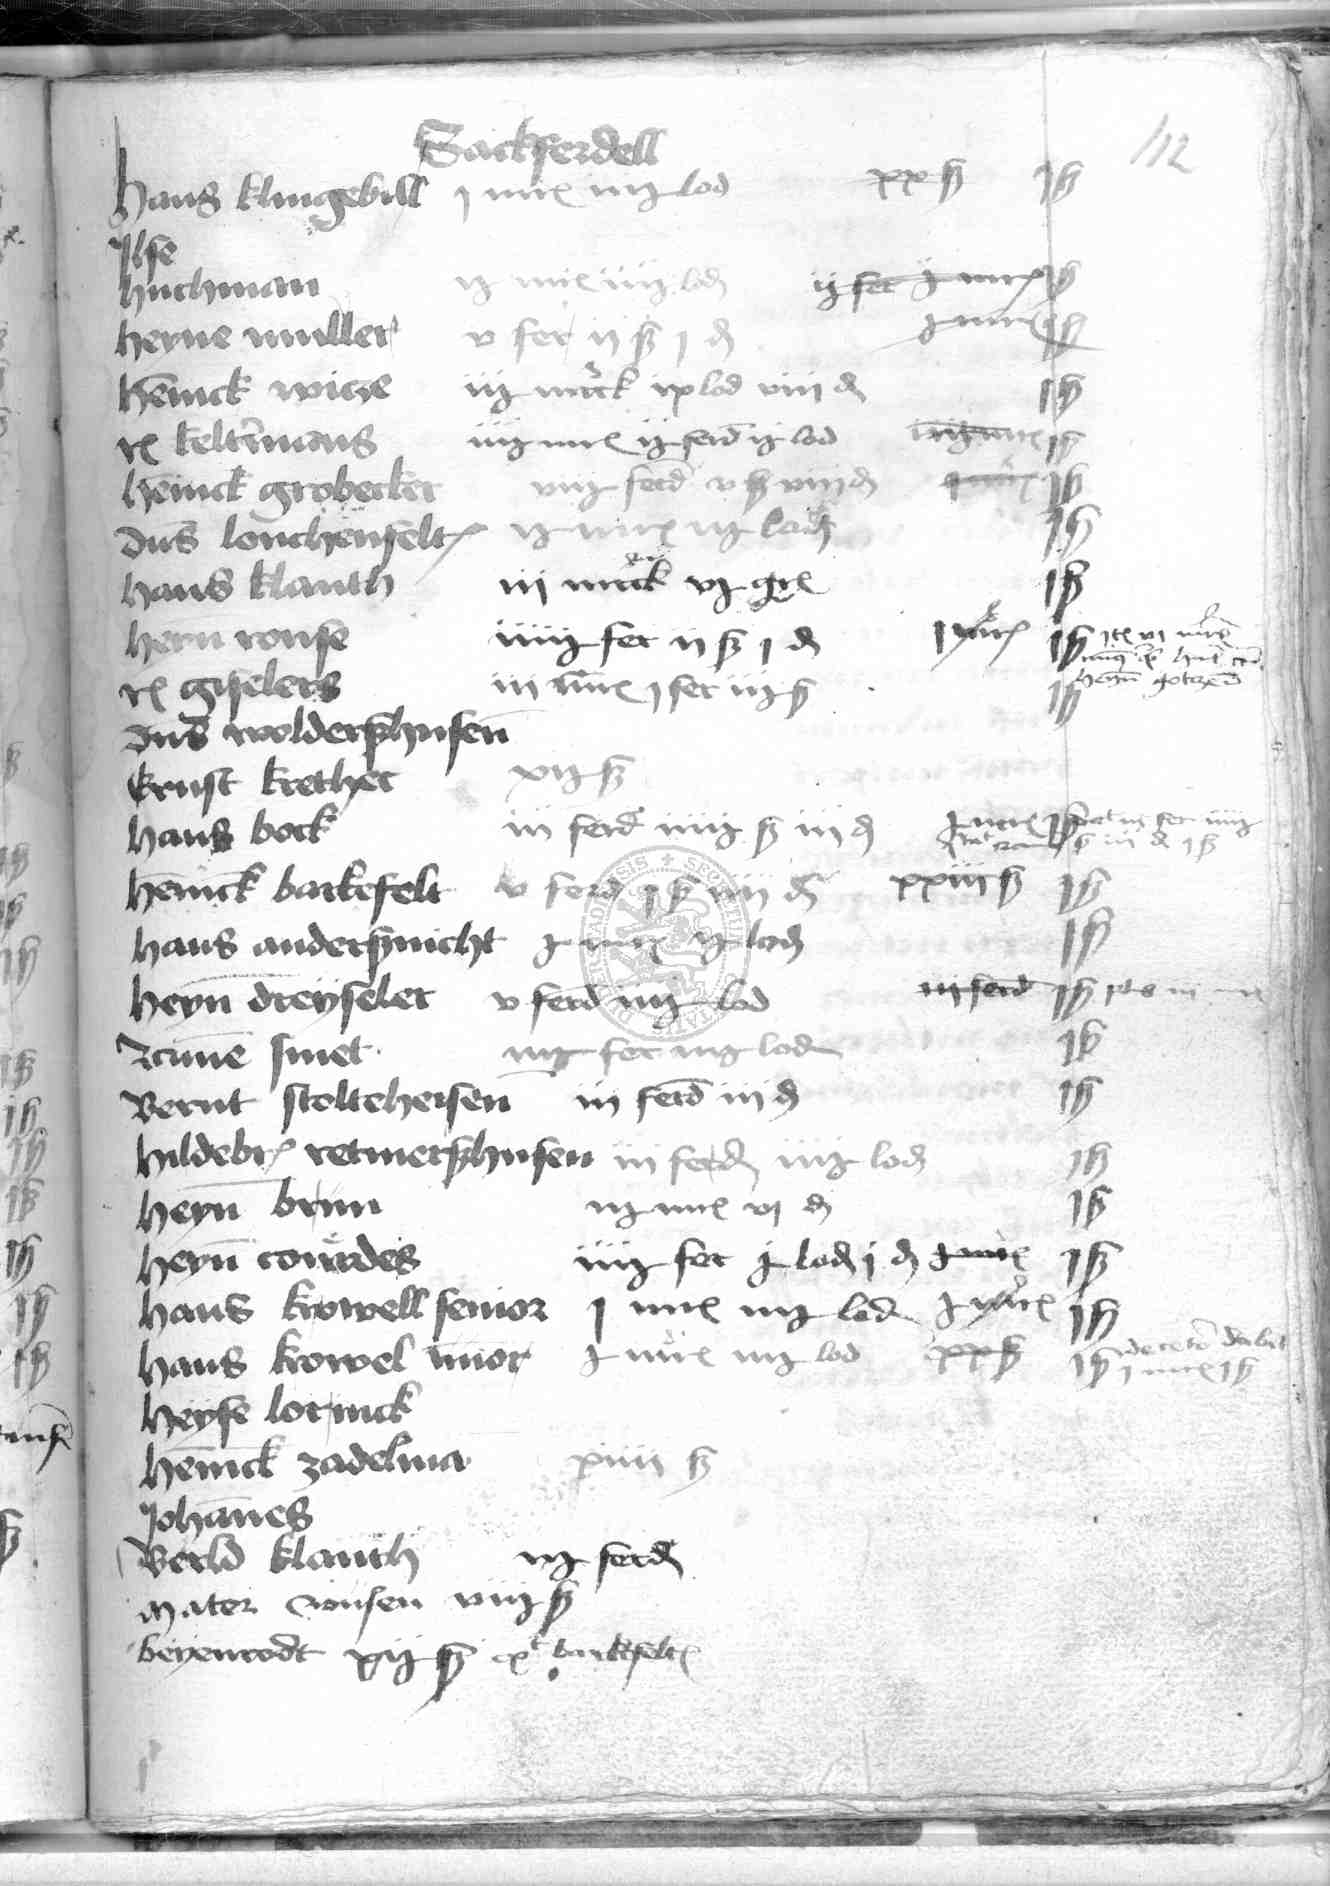 112
Sackferdell
Hans klingebill i mrc iiij lod xx ß i ß
Ilse
huchman ij mrc iiij lod ij fer j mrc i ß
heyne muller v fer ij ß i d j mrc i ß
henick wige iij marck ix lod viii d i ß
rc keltermans iiij mrc ij ferd ij lod i ß
henick grobecker viij ferd v ß viii d i ß
dns ij mrc iij lod i ß
hans klauth iii marck vj gr i ß
heyn ronse iiij fer ij ß i d i mrc i ß
rc giselers iii mrc i fer iij ß i ß
dns wolderßhusen
Ernst krether xij ß
hans bock iii ferd iiij ß iii d j mrc i ß
henick barkefelt v ferd i ß iiii d xxiii ß i ß
hans anderßnicht j mrc ij lod i ß
heyn dreyseler v ferd iiij lod iii ferd i ß
smet iiij fer iiij lod i ß
Bernt stoltehersen iii ferd iii d i ß
hildebr retmerßhusen iii ferd iiij lod i ß
heyn brun iij mrc vi d i ß
heyn conrdes iiij fer j lod i d j mrc i ß
hans krowell senior i mrc iiij lod j mrc i ß
hans krowel iunior j mrc iiij lod xx ß i ß de cetero dabit
i mrc i ß
heyse
henick zadelma xiiii ß
Johanes
Bertld klauth vij ferd
mater viij ß
beyenrodt xij ß barkefelt